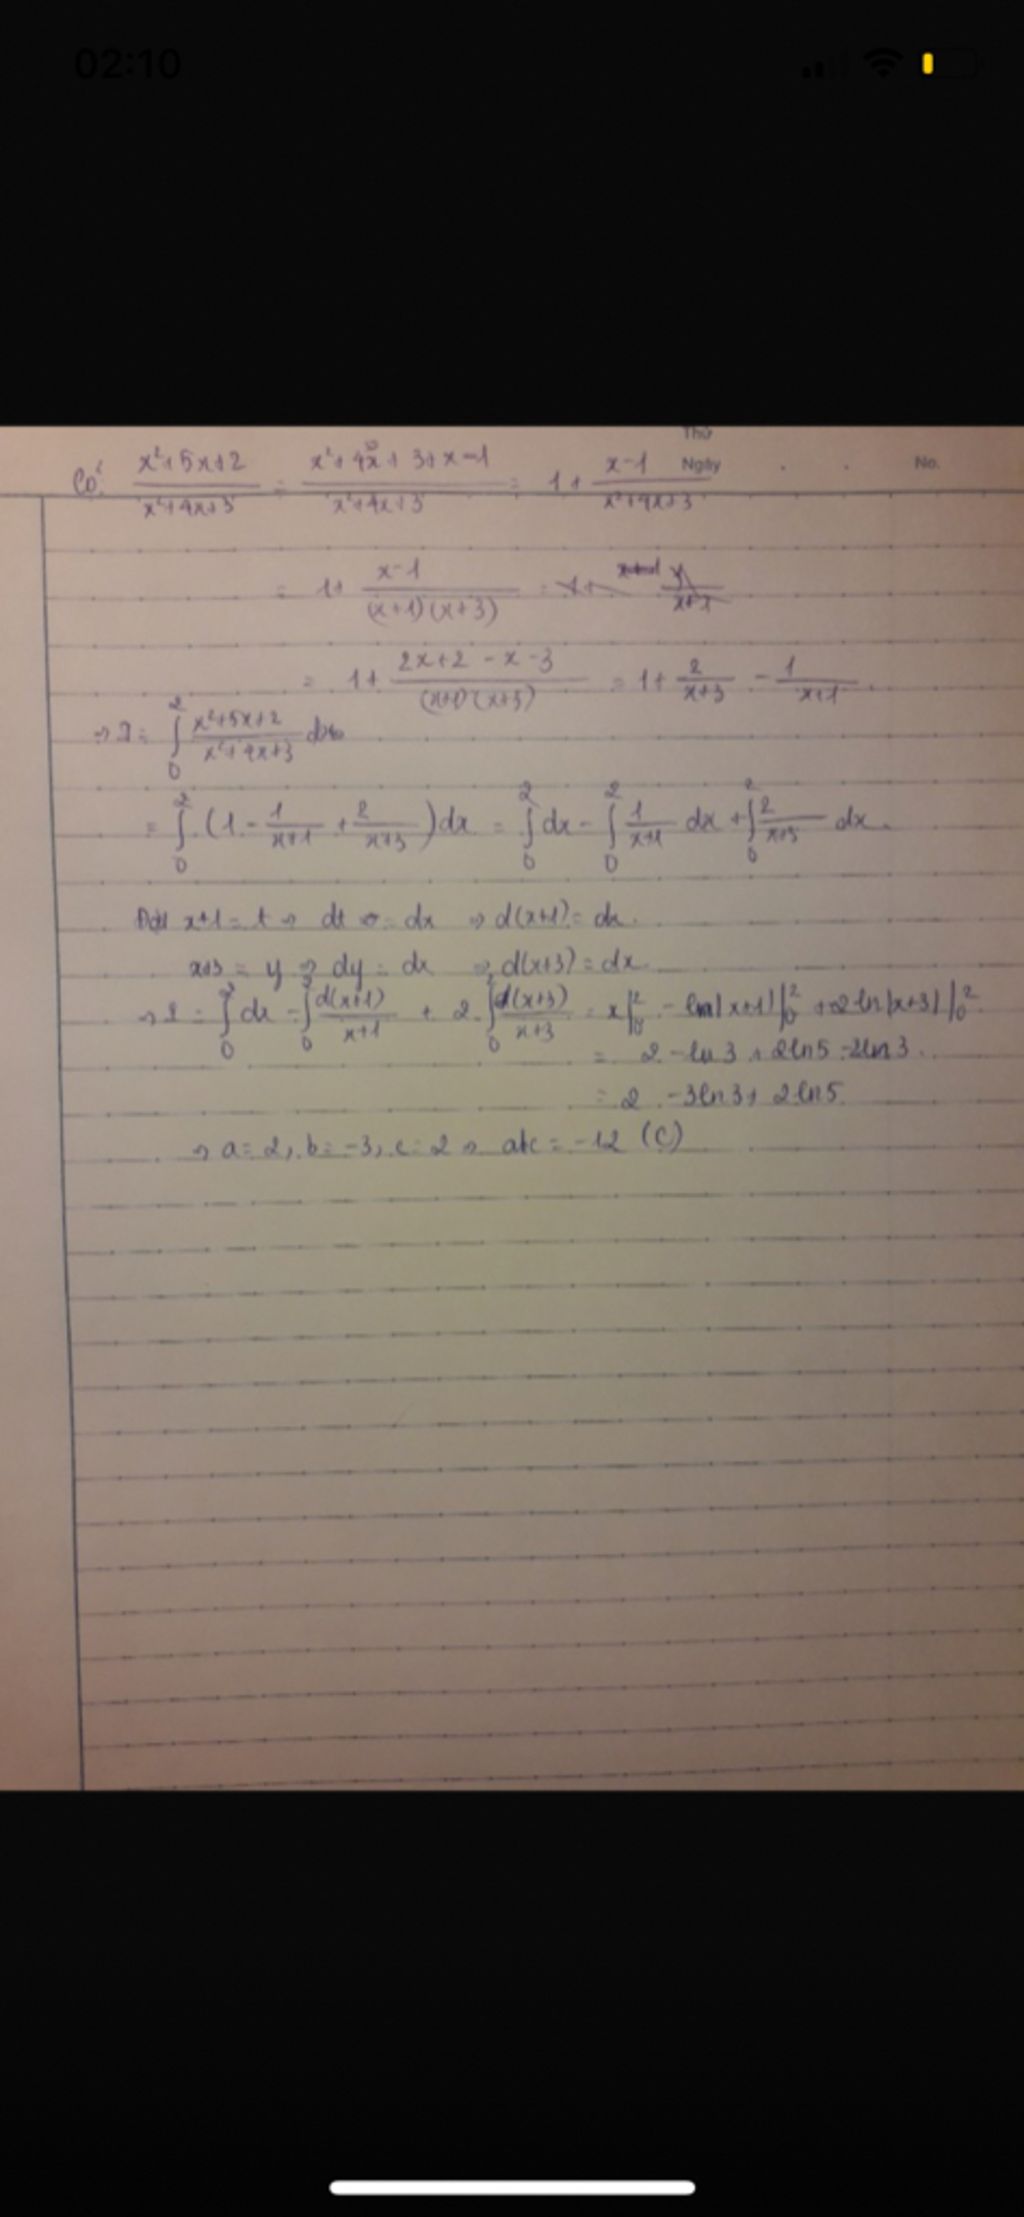 02:10
Thứ
Ngày . . No.
Có: (x²+5x+2)/(x²+4x+3) = (x²+4x+3+x-1)/(x²+4x+3) = 1 + (x-1)/(x²+4x+3)
= 1 + (x-1)/((x+1)(x+3))
= 1 + (2x+2-x-3)/((x+1)(x+3)) = 1 + 2/(x+3) - 1/(x+1)
⇒ I = ∫₀² (x²+5x+2)/(x²+4x+3) dx
= ∫₀² (1 - 1/(x+1) + 2/(x+3)) dx = ∫₀² dx - ∫₀² 1/(x+1) dx + ∫₀² 2/(x+3) dx
Đặt x+1 = t ⇒ dt = dx ⇒ d(x+1) = dx.
x+3 = y ⇒ dy = dx ⇒ d(x+3) = dx.
⇒ I = ∫₀² dx - ∫₀² d(x+1)/(x+1) + 2.∫₀² d(x+3)/(x+3) = x|₀² - ln|x+1||₀² + 2ln|x+3||₀²
= 2 - ln3 + 2ln5 - 2ln3.
= 2 - 3ln3 + 2ln5
⇒ a = 2, b = -3, c = 2 ⇒ abc = -12 (C)